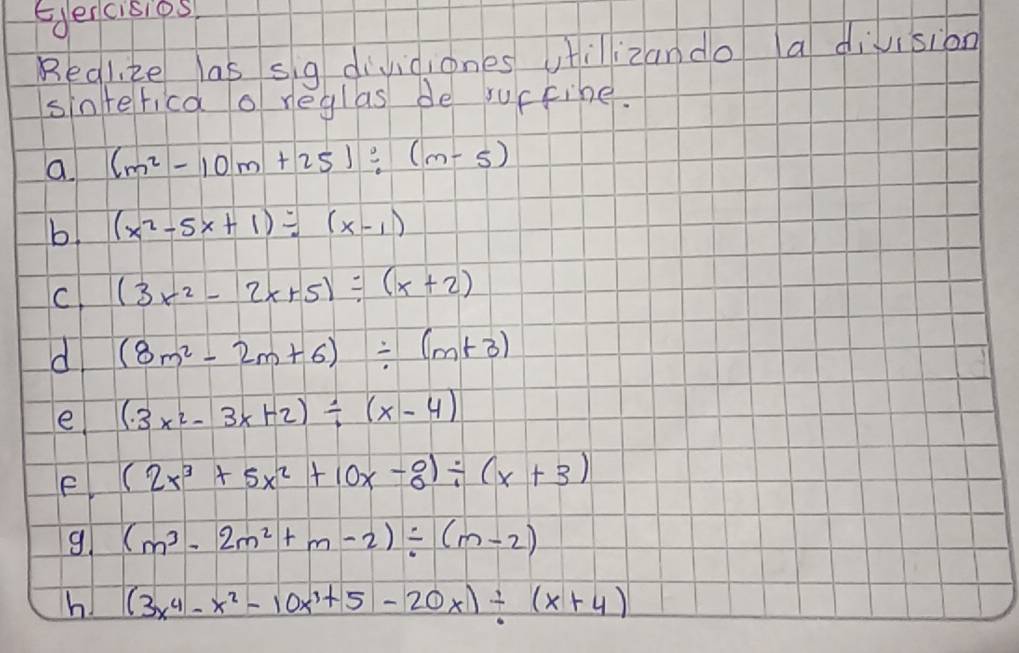 Ejercisios
Realize las sig dividiones utilizando la division
sintetica o reglas de ruffine.
a. (m² - 10m + 25) ÷ (m - 5)
b. (x² - 5x + 1) ÷ (x - 1)
c. (3x² - 2x + 5) ÷ (x + 2)
d. (8m² - 2m + 6) ÷ (m + 3)
e. (3x² - 3x + 2) ÷ (x - 4)
F. (2x³ + 5x² + 10x - 8) ÷ (x + 3)
g. (m³ - 2m² + m - 2) ÷ (m - 2)
h. (3x⁴ - x² - 10x³ + 5 - 20x) ÷ (x + 4)